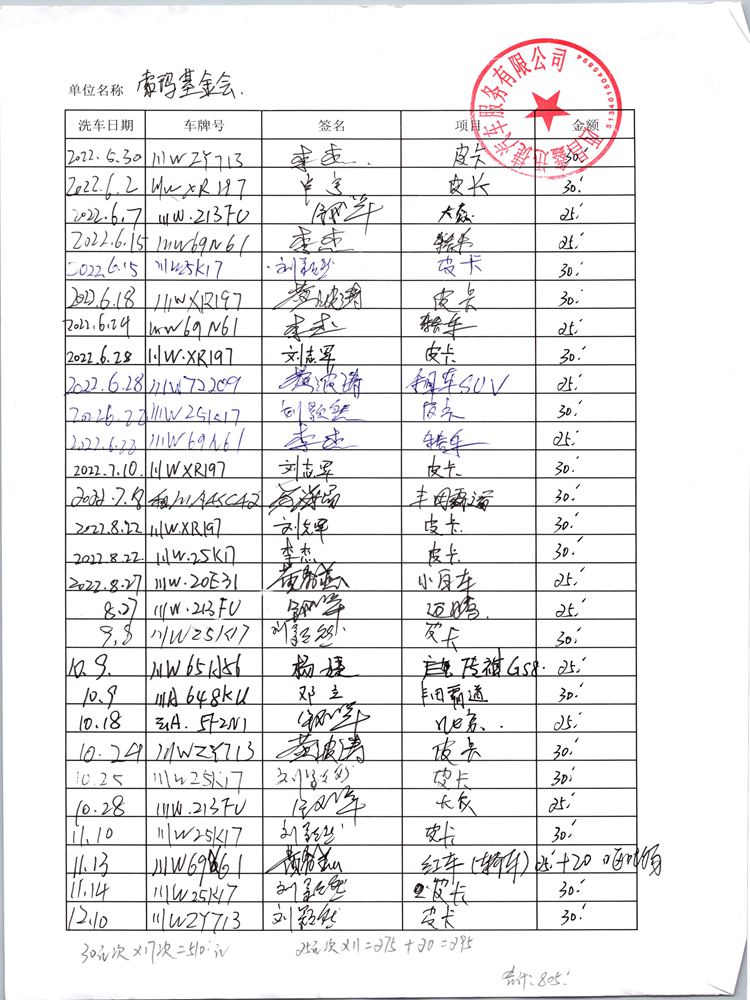 单位名称 索玛基金会.
西昌鑫迅捷汽车服务有限公司
5134010504589
洗车日期 车牌号 签名 项目 金额
2022.5.30 川WZY713 李杰. 皮卡 30.
2022.6.2 川WXR197 皮卡 30.
2022.6.7 川W.213FU 大众 25.
2022.6.15 川W69N61 李杰 轿车 25.
2022.6.15 川W25K17 刘颖然 皮卡 30.
2022.6.18 川WXR197 黄波涛 皮卡 30.
2022.6.24 川W69N61 李杰 轿车 25.
2022.6.28 川W.XR197 刘志军 皮卡 30.
2022.6.28 川W72209 黄波涛 轿车SUV 25.
川W25K17 刘颖然 皮卡 30.
川W69N61 李杰 轿车 25.
2022.7.10. 川WXR197 刘志军 皮卡 30.
2022.7.8 丰田霸道 30.
2022.8.22 川W.XR197 刘志军 皮卡 30.
2022.8.22. 川W.25K17 李杰 皮卡 30.
2022.8.27 川W.20E31 25.
8.27 川W.213FU 迈腾 25.
9.8 川W25K17 刘颖然 皮卡 30.
10.9. 川W65A56 杨捷 传祺GS8. 25.
10.9 川A648KU 邓立 丰田霸道 30.
10.18 25.
10.24 川WZY713 黄波涛 皮卡 30.
10.25 川W25K17 刘颖然 皮卡 30.
10.28 川W.213FU 大众 25.
11.10 川W25K17 刘颖然 皮卡 30.
11.13 红车(轿车) 25.+20
11.14 川W25K17 刘颖然 皮卡 30.
12.10 川WZY713 刘颖然 皮卡 30.
30元/次×17次=510元 25元/次×11=275+20=295
合计:805.